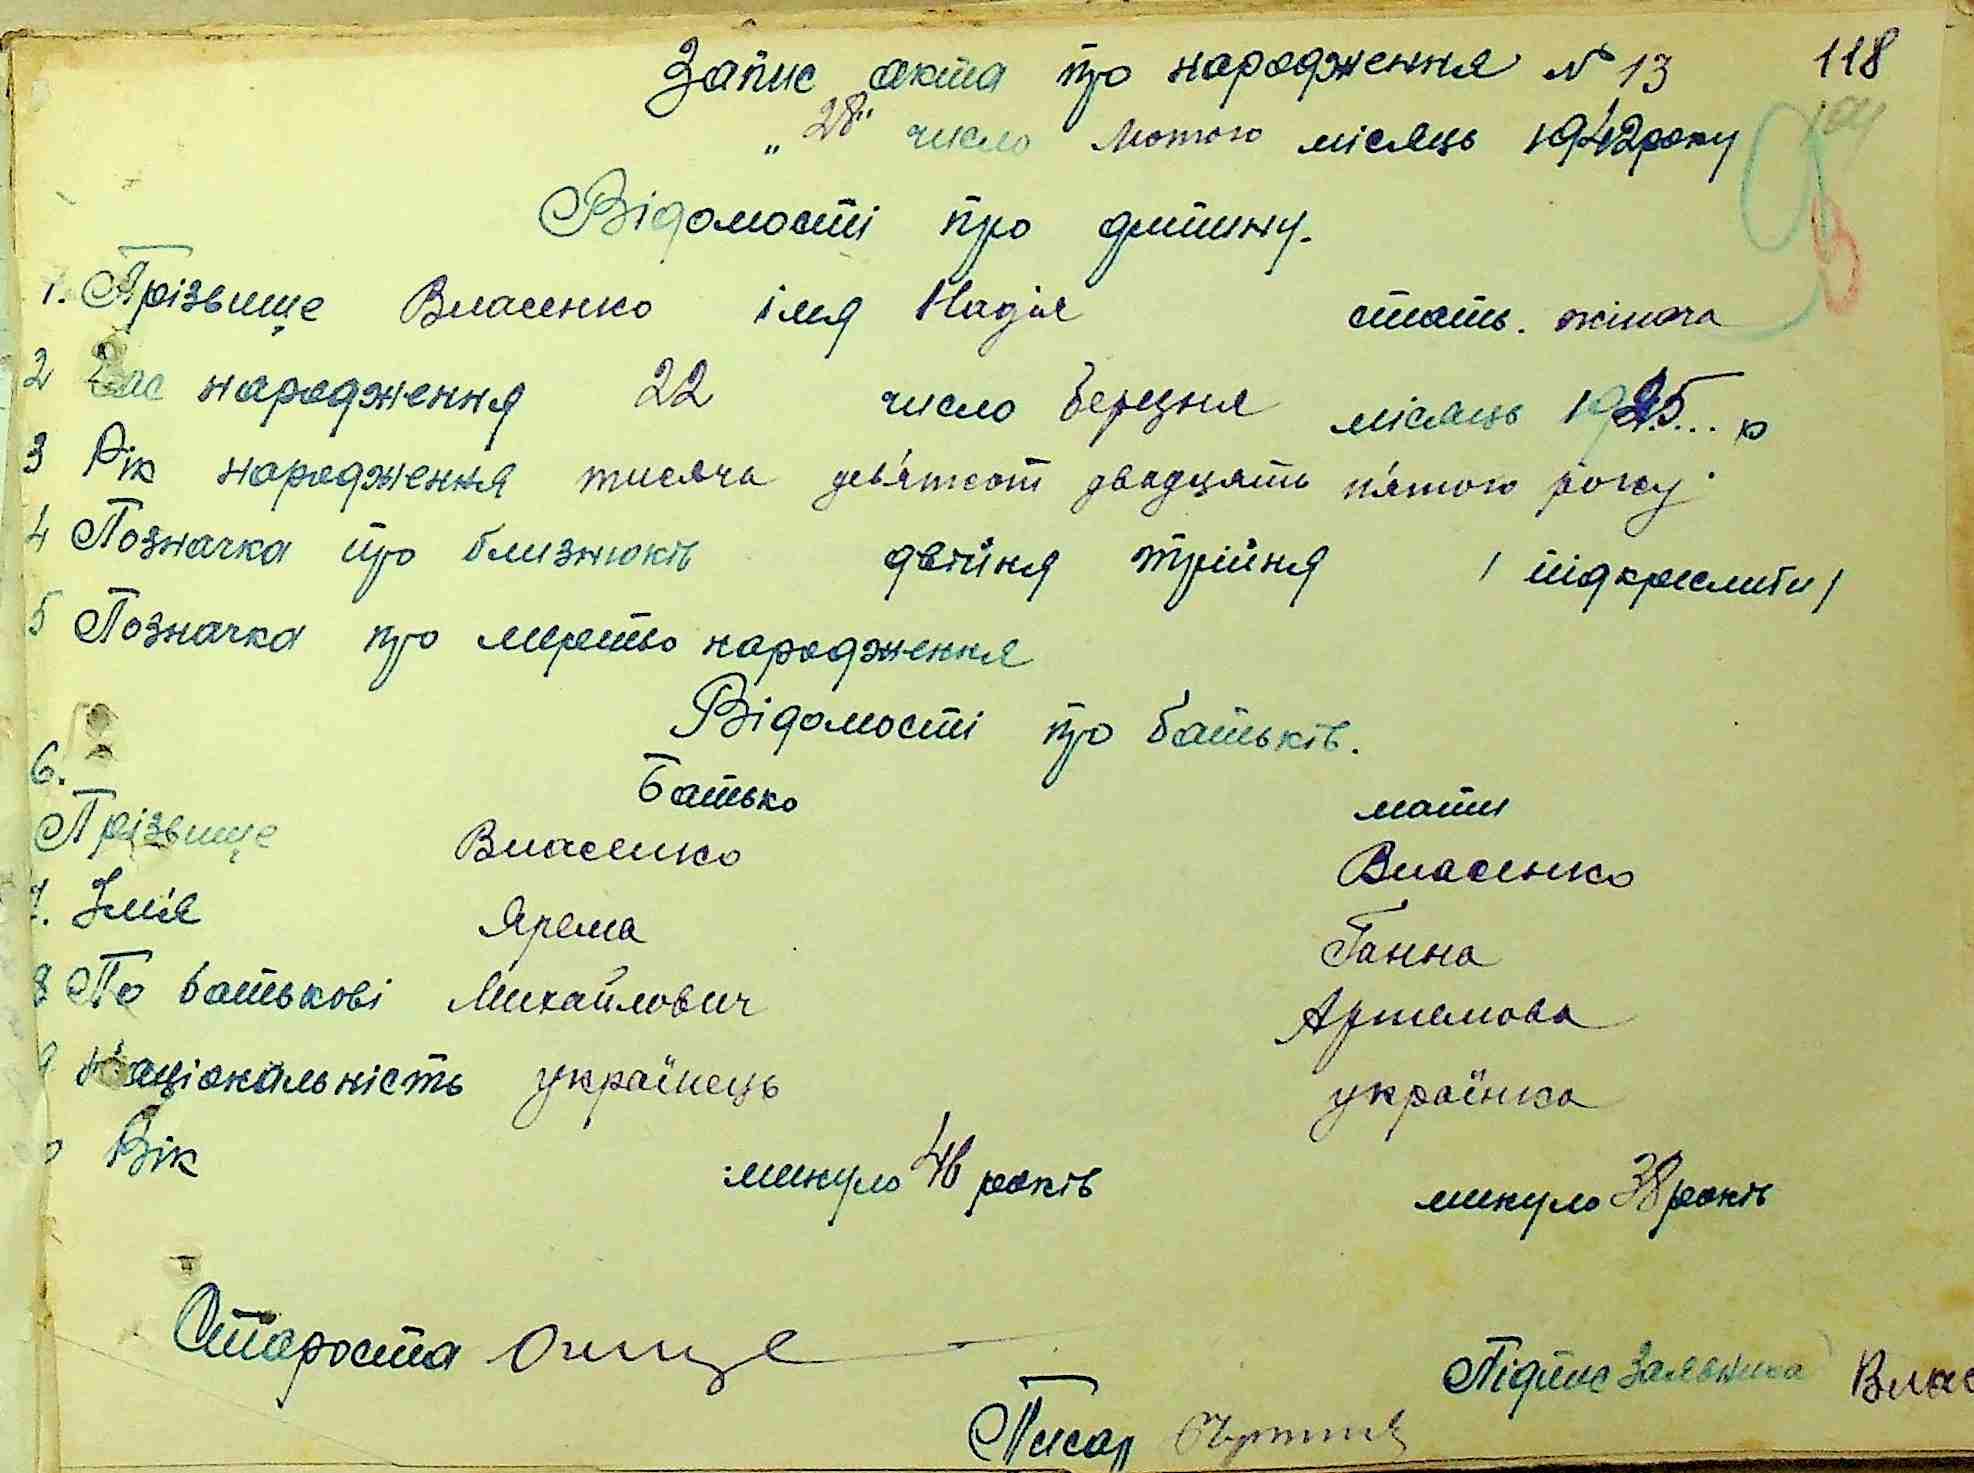 118
Запис акта про народження № 13
„28" число лютого місяць 1942 року
Відомості про дитину.
1. Прізвище Власенко імя Надія стать. жіноча
2 Час народження 22 число березня місяць 1925... р
3 Рік народження тисяча дев'ятсот двадцять п'ятого року.
4 Позначка про близнюків двійня трійня /підкреслити/
5 Позначка про мертво народження
Відомості про батьків.
6.
Батько мати
Прізвище Власенко Власенко
7. Імя Ярема Ганна
8 По батькові Михайлович Артемова
9 Національність українець українка
Вік минуло 46 років минуло 38 років
Староста
Підпис заявника Влас
Писар